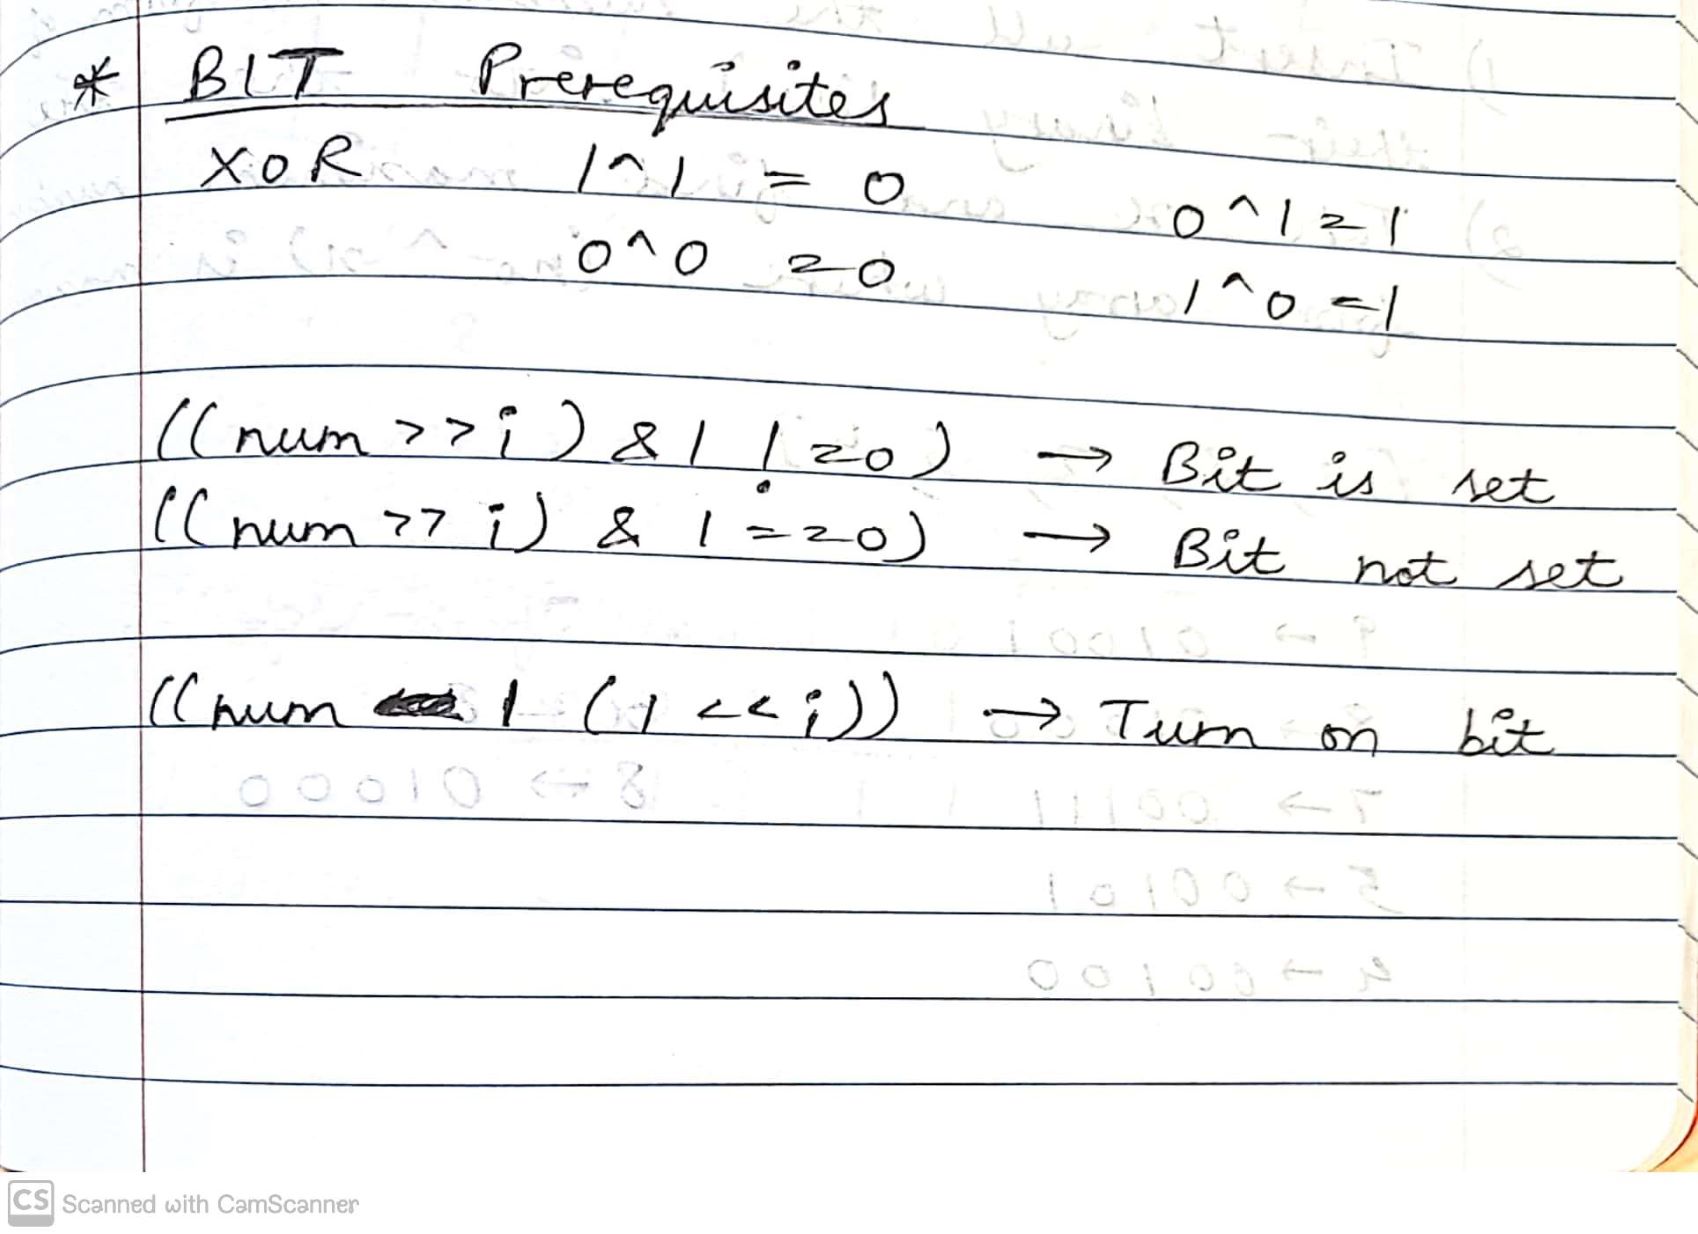 * BIT Prerequisites
XOR 1^1 = 0 0^1=1
0^0 =0 1^0 =1
((num >>i) &1 !=0) → Bit is set
((num >> i) & 1 ==0) → Bit not set
((num | (1 <<i)) → Turn on bit
CS Scanned with CamScanner